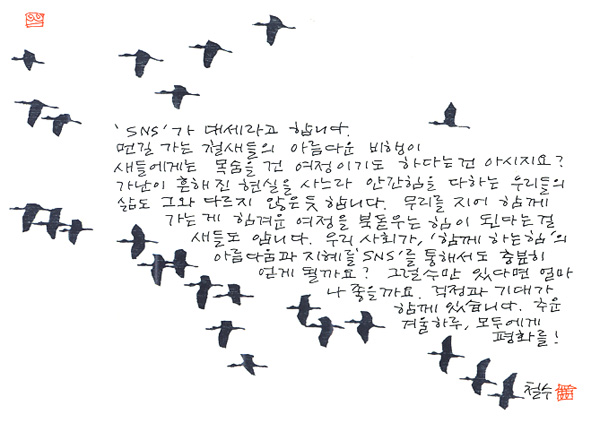 'SNS'가 대세라고 합니다.
먼길 가는 철새들의 아름다운 비행이
새들에게는 목숨을 건 여정이기도 하다는건 아시지요?
가난이 흔해진 현실을 사느라 안간힘을 다하는 우리들의
삶도 그와 다르지 않은듯 합니다. 무리를 지어 함께
가는게 힘겨운 여정을 북돋우는 힘이 된다는걸
새들도 압니다. 우리 사회가, '함께 하는 힘'의
아름다움과 지혜를 'SNS'를 통해서도 충분히
얻게 될까요? 그럴수만 있다면 얼마
나 좋을까요. 걱정과 기대가
함께 있습니다. 추운
겨울하루, 모두에게
평화를!
철수